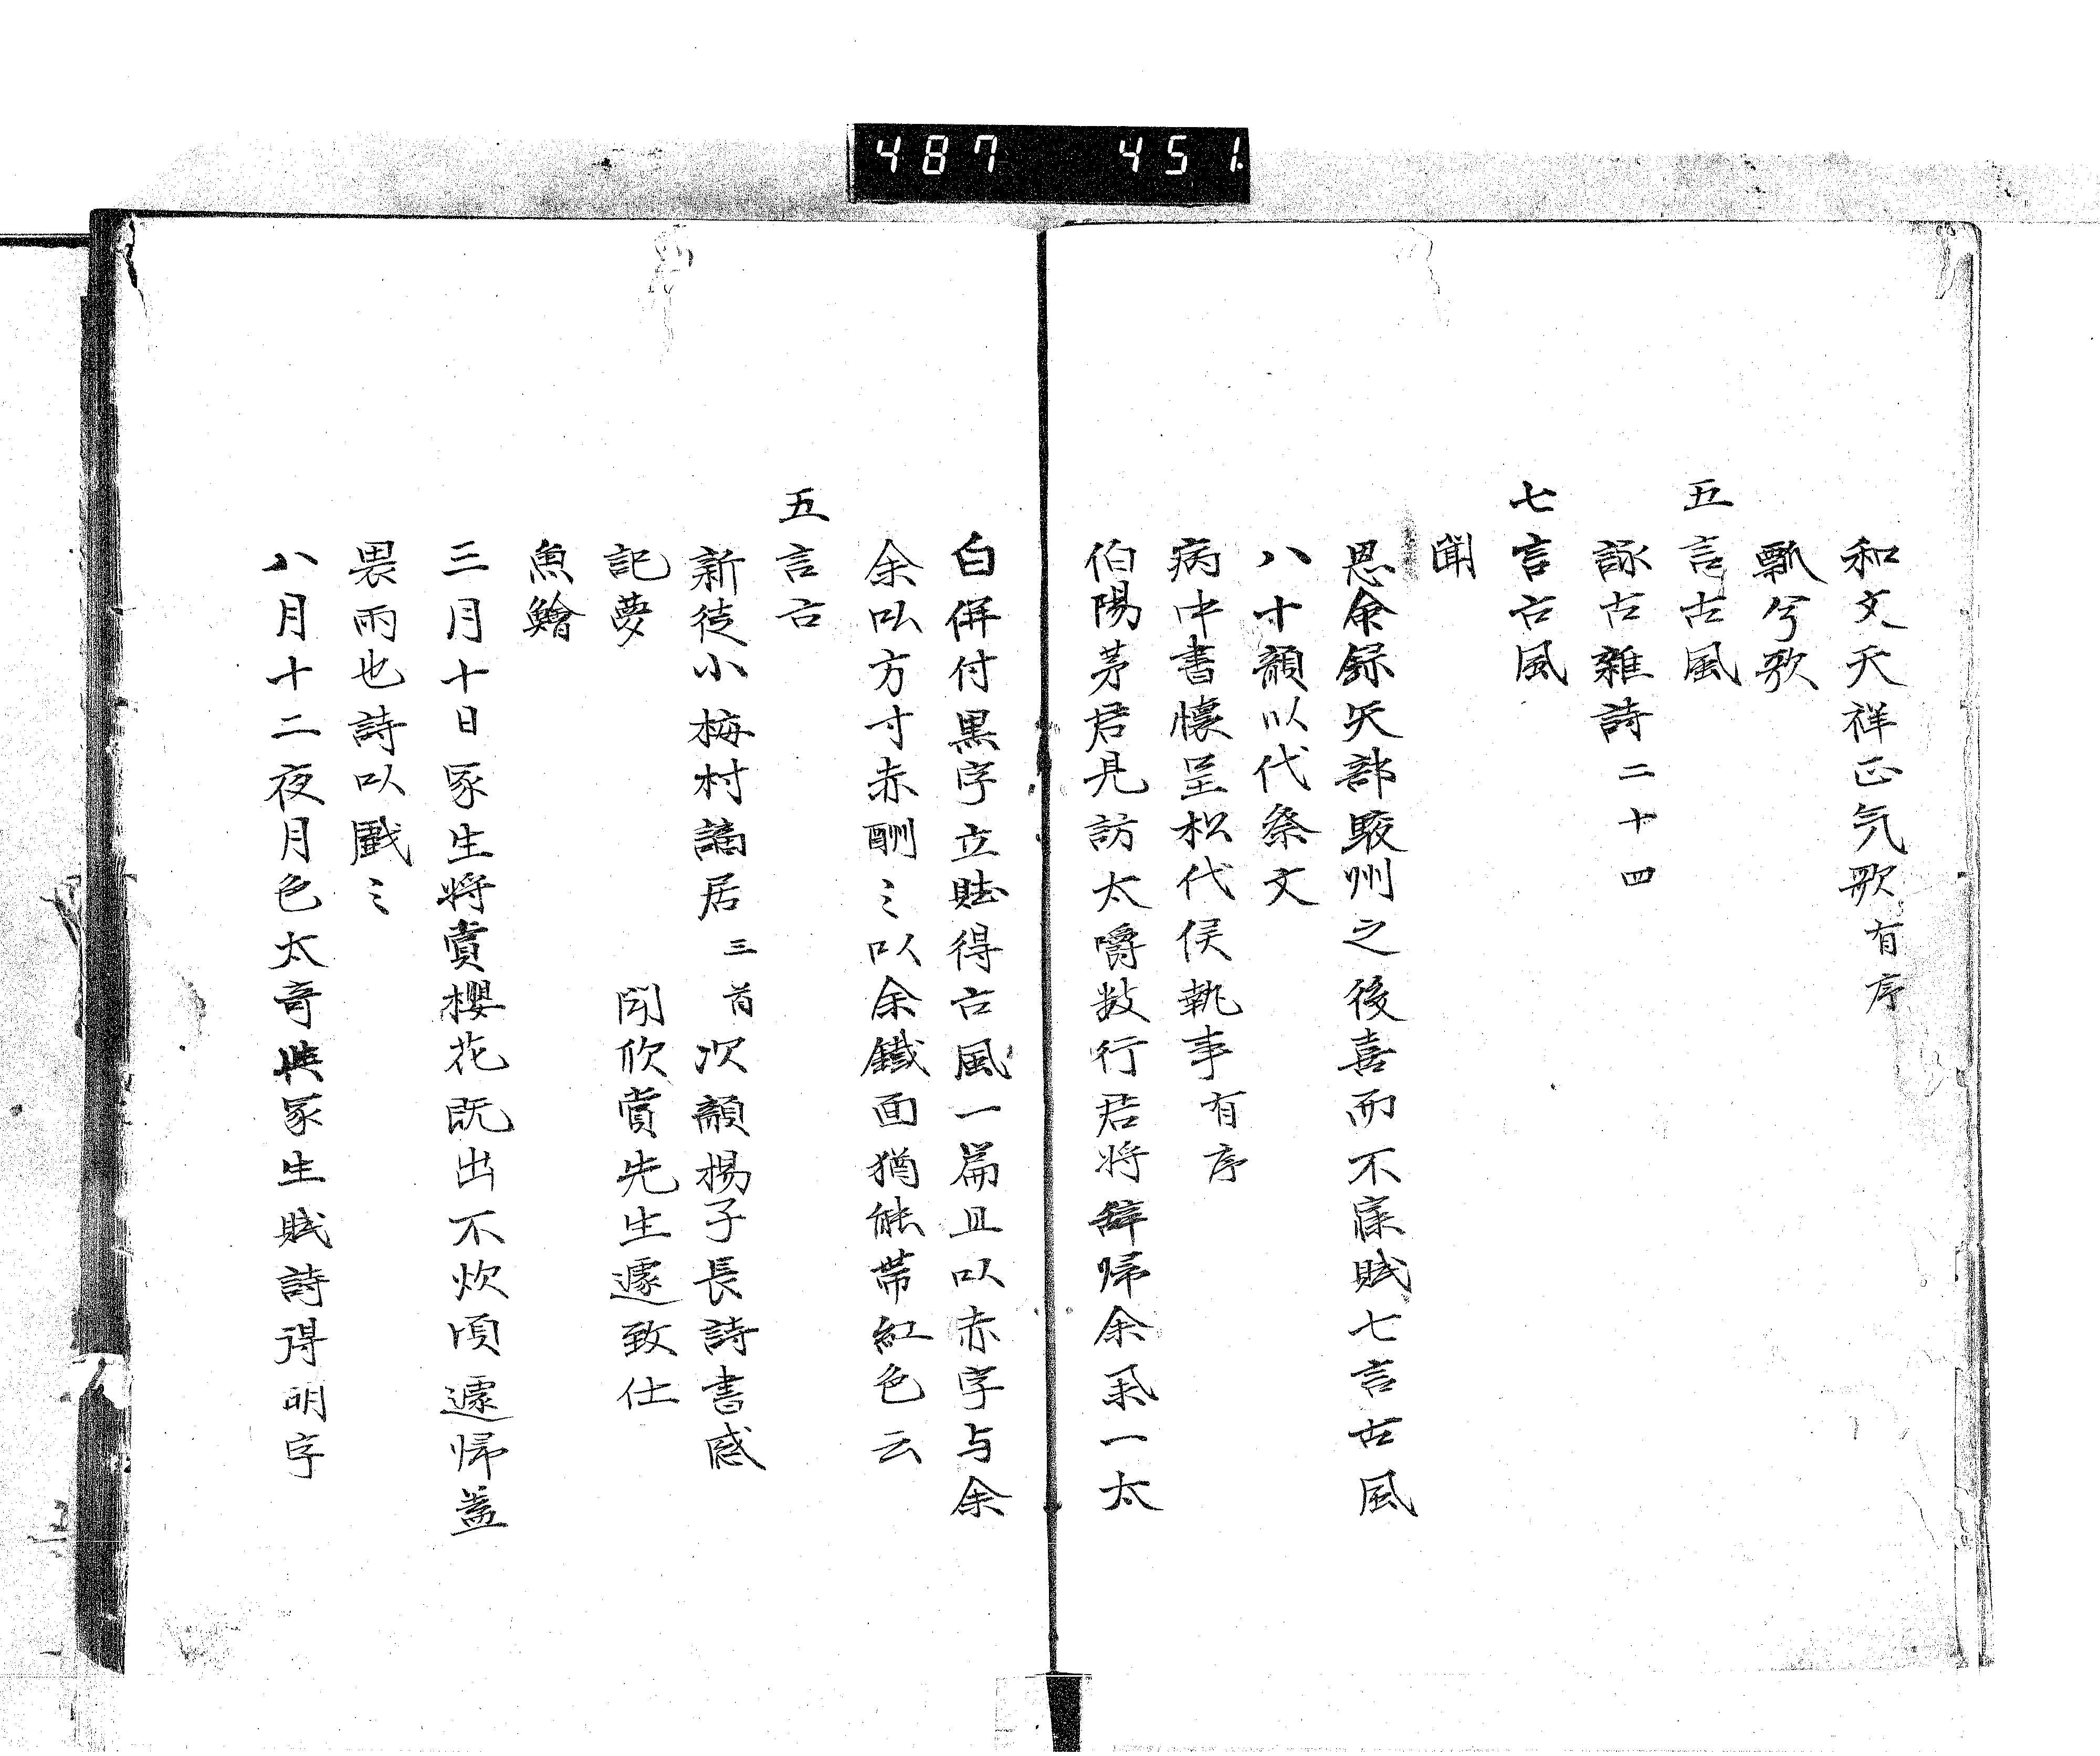 487 451
和文天祥正气歌有序
瓢兮歌
五言古風
詠古雜詩二十四
七言古風
聞
恩余録矢部駿州之後喜而不寐賦七言古風
八十韻以代祭文
病中書懐呈松代侯執事有序
伯陽茅君見訪太嚼数行君将辞帰余罰一太
白併付黒字立賭得古風一篇且以赤字与余
余以方寸赤酬之以余鐵面猶能帯紅色云
五言古
新徒小梅村謫居三首次韻揚子長詩書感
記夢 聞欣賞先生遽致仕
魚鱠
三月十日冢生将賞櫻花既出不炊頃遽帰蓋
畏雨也詩以戲之
八月十二夜月色太奇與冢生賦詩得明字